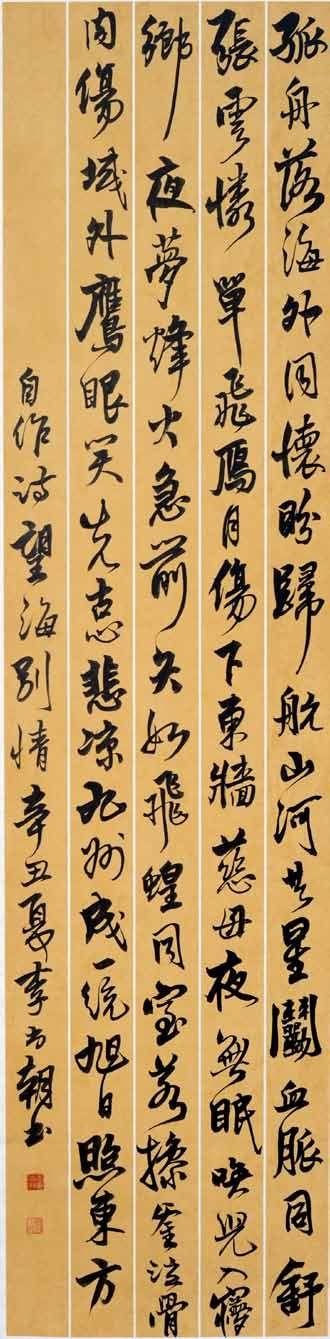 孤舟落海外同懷盼歸航山河共星鬭血脈同舒
張雲憐單飛雁月傷下東牆慈母夜無眠喚兒入
鄉夜夢烽火急前矢如飛蝗同室若操泣骨
肉傷域外鷹眼笑先悲涼九州成一統旭日照東方
自作詩望海別情辛丑夏李朝書